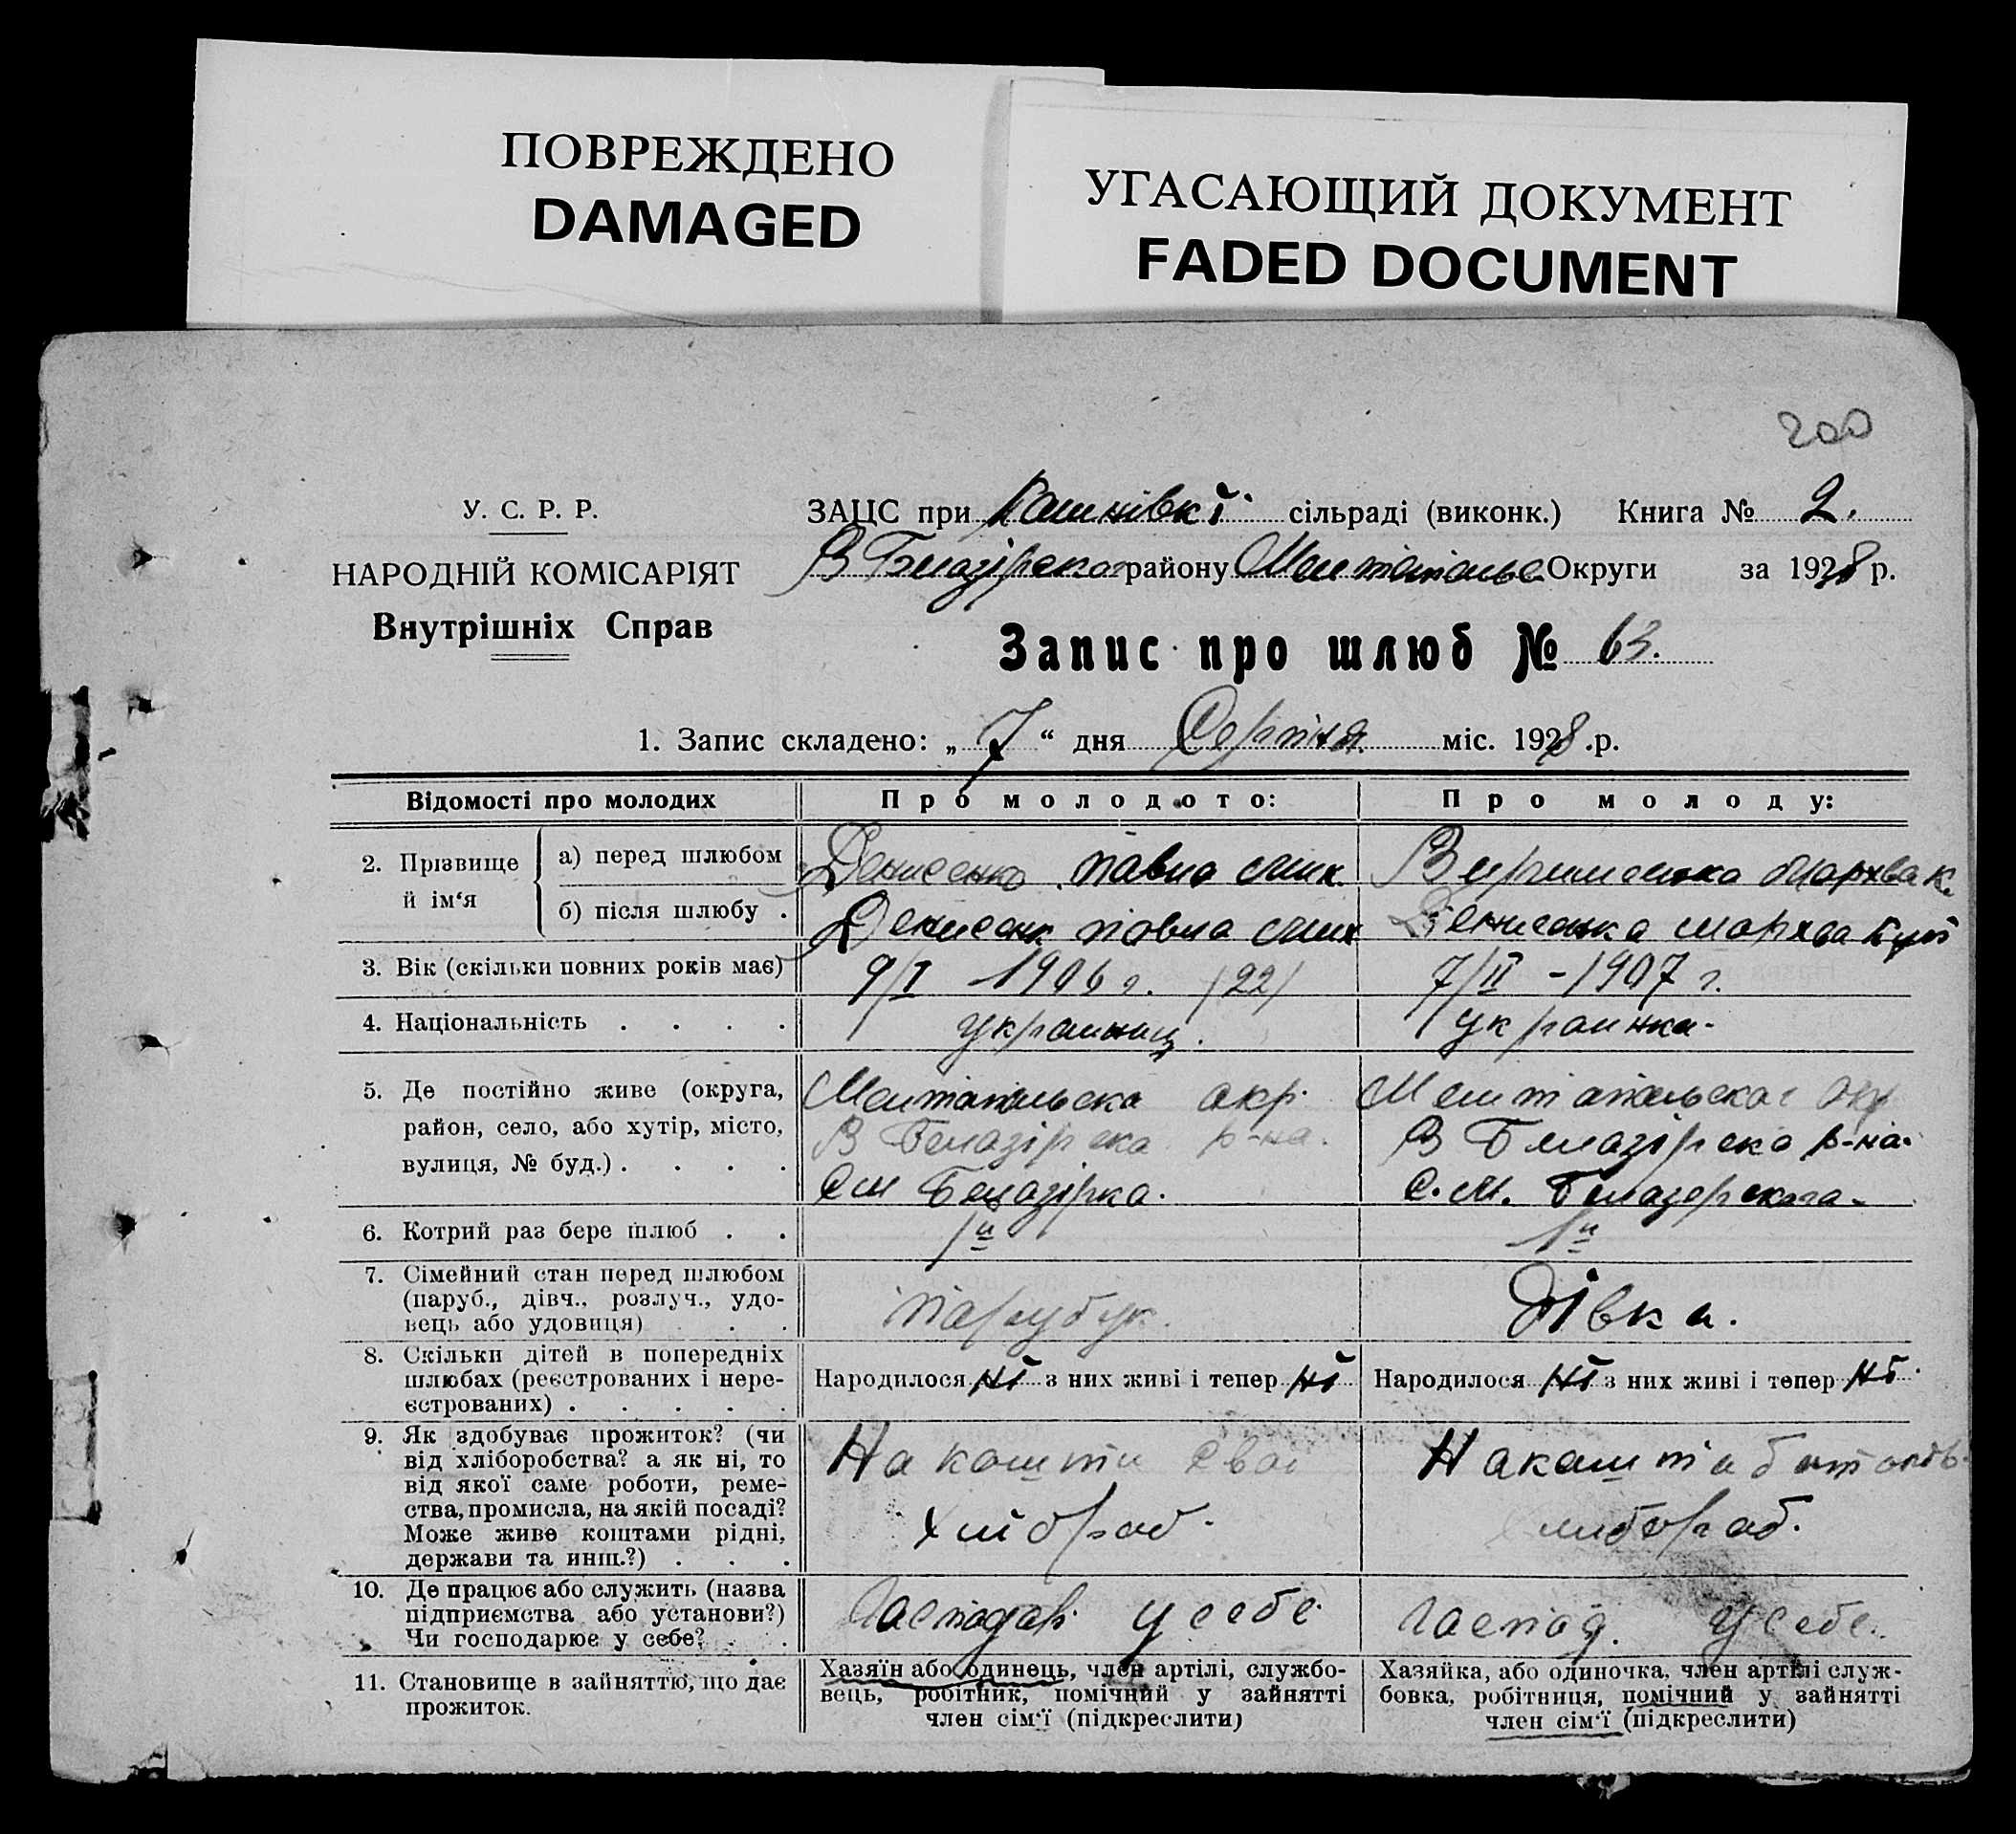 ПОВРЕЖДЕНО
DAMAGED
УГАСАЮЩИЙ ДОКУМЕНТ
FADED DOCUMENT
200
У. С. Р. Р.
НАРОДНІЙ КОМІСАРІЯТ
Внутрішніх Справ
ЗАЦС при сільраді (виконк.) Книга № 2.
В району Округи за 1928 р.
Запис про шлюб № 63.
1. Запис складено: „ 7 “ дня Серпня. міс. 1928 .р.
Відомості про молодих
Про молодого:
Про молоду:
2. Прізвище й ім‘я
а) перед шлюбом
Денисенко Павло Мих.
Мархва К.
б) після шлюбу .
Денисенк Павло Мих
Денисенка Мархва
3. Вік (скільки повних років має)
9/I 1906 г. /22/
7/II - 1907 г.
4. Національність . . . .
Украинец.
Украинка.
5. Де постійно живе (округа,
район, село, або хутір, місто,
вулиця, № буд.) . . . .
окр.
В р-на.
См
окр
В р-на.
С. М.
6. Котрий раз бере шлюб . .
1й
1й
7. Сімейний стан перед шлюбом
(паруб., дівч., розлуч., удо-
вець або удовиця) . .
Парубук.
Дівка.
8. Скільки дітей в попередніх
шлюбах (реєстрованих і нере-
єстрованих) . . . . .
Народилося ні з них живі і тепер ні
Народилося ні з них живі і тепер ні
9. Як здобуває прожиток? (чи
від хліборобства? а як ні, то
від якої саме роботи, реме-
ства, промисла, на якій посаді?
Може живе коштами рідні,
держави та инш.?) . . .
На кошти свої
На кошта
10. Де працює або служить (назва
підприємства або установи?)
Чи господарює у себе? . .
у себе
господ. у себе.
11. Становище в зайняттю, що дає
прожиток.
Хазяїн або одинець, член артілі, службо-
вець, робітник, помічний у зайнятті
член сім‘ї (підкреслити)
Хазяйка, або одиночка, член артілі служ-
бовка, робітниця, помічний у зайнятті
член сім‘ї (підкреслити)